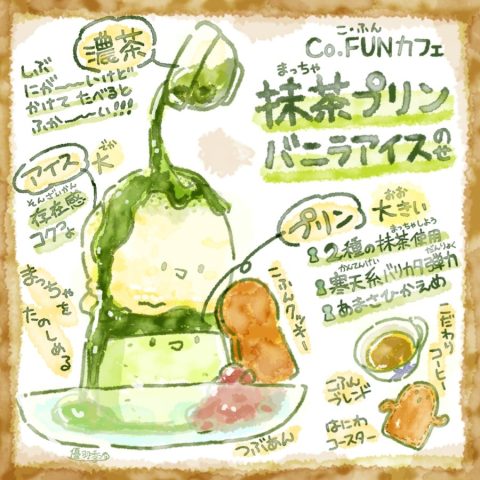 こ・ふん
Co.FUNカフェ
まっちゃ
抹茶プリン
バニラアイスのせ
濃茶
しぶ
にが〜〜いけど
かけて たべると
ふか〜〜い!!!
アイス
大
そんざいかん
存在感
コクつよ
まっちゃを
たのしめる
プリン
おお
大きい
まっちゃしよう
2種の抹茶使用
かんてんけい だんりょく
寒天系バリカタ弾力
あまさひかえめ
こふんクッキー
つぶあん
こだわり
コーヒー
こふん
ブレンド
はにわ
コースター